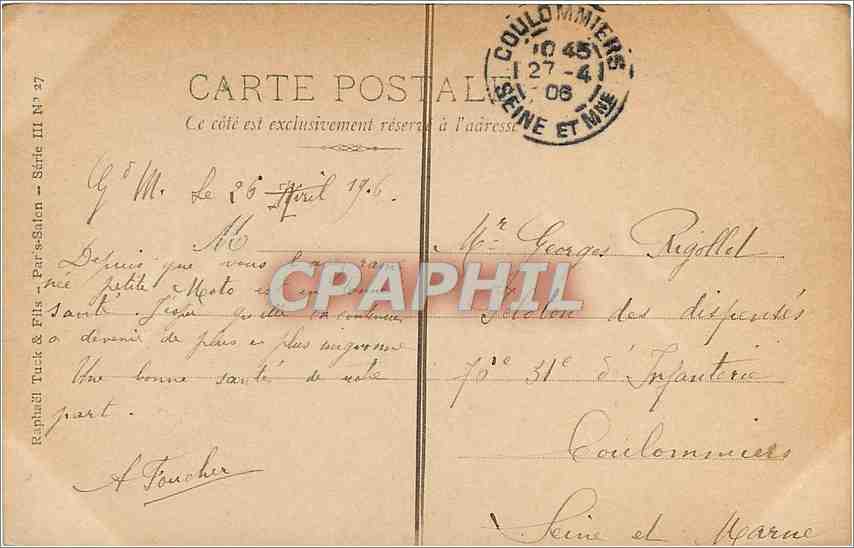 CARTE POSTALE
Ce côté est exclusivement réservé à l'adresse
COULOMMIERS
10 45
27 -4
06
SEINE ET MNE
Raphaël Tuck & Fils – Par's-Salon – Série III N° 27
Gd M. Le 26 Avril 1906.
M
Depuis que vous l'avez
née petite Moto est en bonne
santé. J'espè qu'elle va continuer
a devenir de plus en plus mignonne
Une bonne santé de notre
part.
A Foucher
Mr Georges Rigollet
Peloton des dispensés
31e d'Infanterie
Coulommiers
Seine et Marne
CPAPHIL